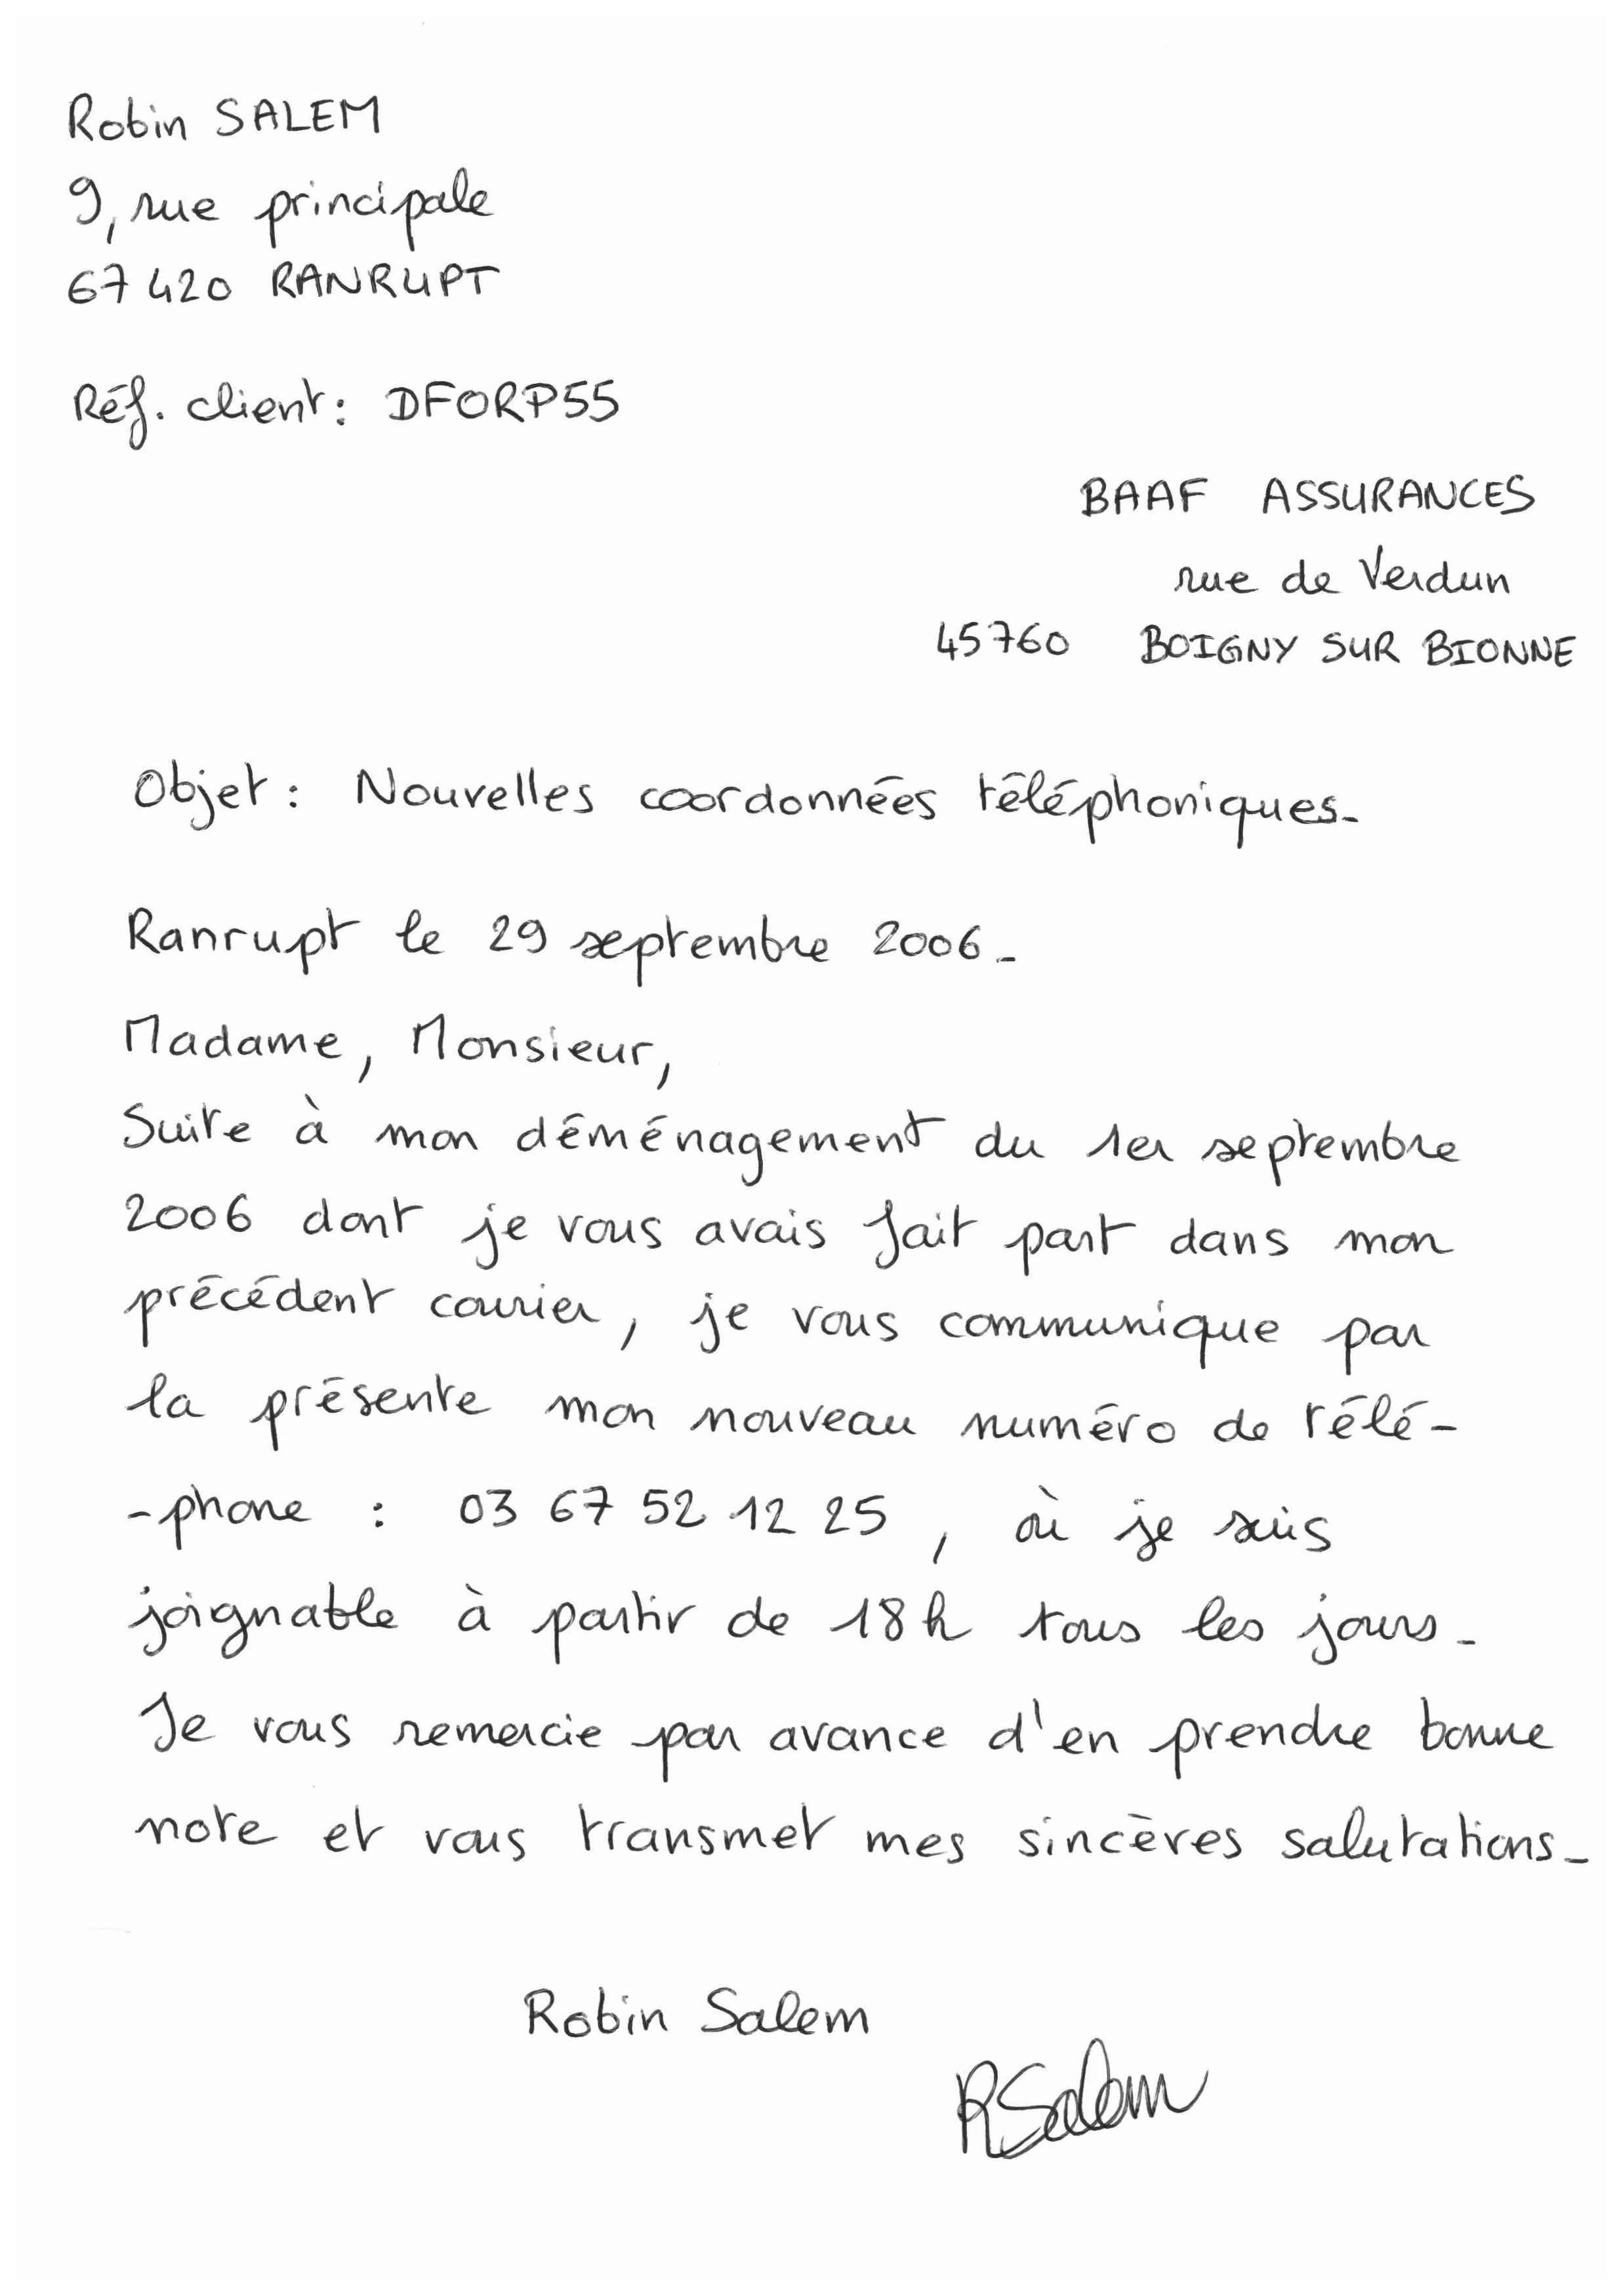 Robin SALEM
9, rue principale
67420 RANRUPT
Réf. client : DFORP55
BAAF ASSURANCES
rue de Verdun
45760 BOIGNY SUR BIONNE
Objet : Nouvelles coordonnées téléphoniques.
Ranrupt le 29 septembre 2006.
Madame, Monsieur,
Suite à mon déménagement du 1er septembre
2006 dont je vous avais fait part dans mon
précédent courrier, je vous communique par
la présente mon nouveau numéro de télé-
-phone : 03 67 52 12 25, où je suis
joignable à partir de 18h tous les jours.
Je vous remercie par avance d'en prendre bonne
note et vous transmet mes sincères salutations.
Robin Salem
RSalem